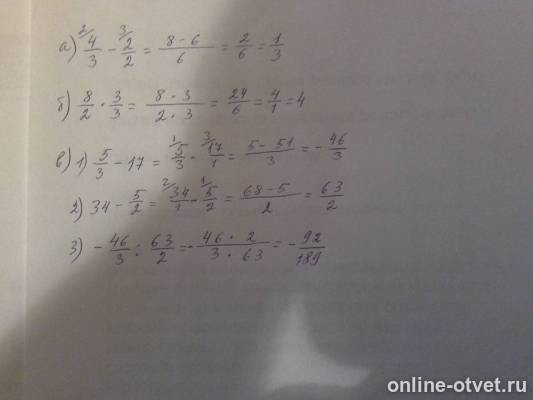 а) ²/4/3 − ³/2/2 = 8-6/6 = 2/6 = 1/3
б) 8/2 · 3/3 = 8·3/2·3 = 24/6 = 4/1 = 4
в) 1) 5/3 − 17 = ¹/5/3 − ³/17/1 = 5-51/3 = − 46/3
2) 34 − 5/2 = ²/34/1 − ¹/5/2 = 68-5/2 = 63/2
3) − 46/3 : 63/2 = − 46·2/3·63 = − 92/189
online-otvet.ru